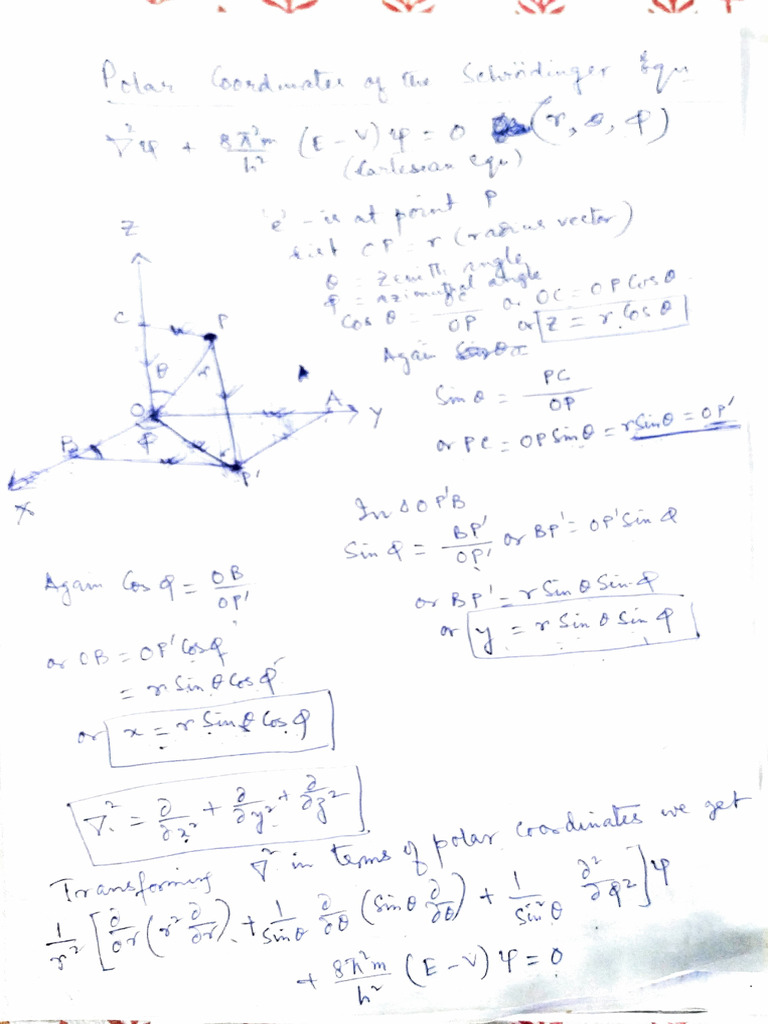 Polar Coordinates of the Schrödinger Equn
∇²ψ + 8π²m/h² (E – V) ψ = 0 (r, θ, φ)
(Cartesian equn)
'e' – is at point P
Let OP = r (radius vector)
θ = Zenith angle
φ = azimuthal angle
Cos θ = OC/OP or OC = OP Cos θ
or z = r Cos θ
Again
Sin θ = PC/OP
or PC = OP Sin θ = r Sin θ = OP'
Z
C
P
θ
r
O
A
Y
B
φ
P'
X
In Δ OP'B
Sin φ = BP'/OP' or BP' = OP' Sin φ
or BP' = r Sin θ Sin φ
or y = r Sin θ Sin φ
Again Cos φ = OB/OP'
or OB = OP' Cos φ
= r Sin θ Cos φ
or x = r Sin θ Cos φ
∇² = ∂/∂x² + ∂/∂y² + ∂/∂z²
Transforming ∇² in terms of polar coordinates we get
1/r² [∂/∂r (r² ∂/∂r) + 1/Sin θ ∂/∂θ (Sin θ ∂/∂θ) + 1/Sin² θ ∂²/∂φ²] ψ
+ 8π²m/h² (E – V) ψ = 0